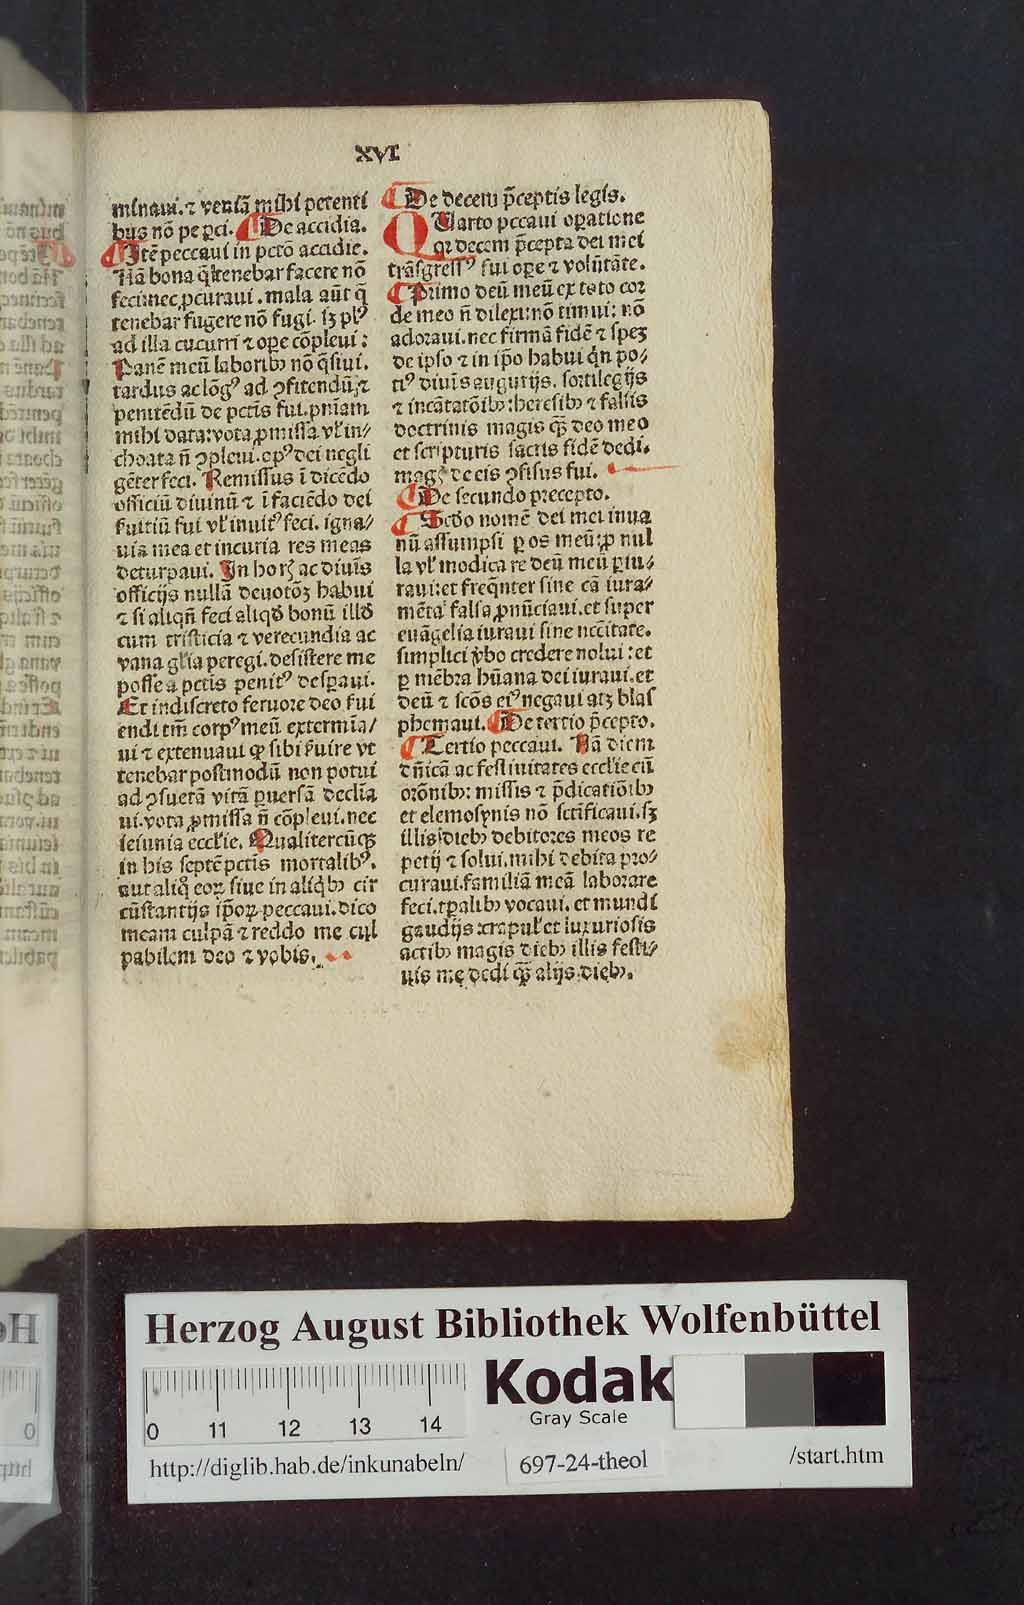 XVI
minaui. ⁊ veniã mihi petenti
bus nõ peꝑci. ¶ De accidia.
¶ Itẽ peccaui in pctõ accidie.
Nã bona q̃ tenebar facere nõ
feci: nec ꝓcuraui. mala aũt q̃
tenebar fugere nõ fugi. sꝫ plꝰ
ad illa cucurri ⁊ oꝑe cõpleui:
Panẽ meũ laboribꝰ nõ q̃siui.
tardus ac lõgꝰ ad ↄfitendũ ⁊
penitẽdũ de pctĩs fui. pniam
mihi data: vota ꝓmissa vł in⸗
choata ñ ↄpleui. opꝰ dei negli
gẽter feci. Remissus ĩ dicẽdo
officiũ diuinũ ⁊ ĩ faciẽdo dei
ẜuitiũ fui vł inuitꝰ feci. igna⸗
uia mea et incuria res meas
deturpaui. In horꝭ ac diuĩs
officijs nullã deuotõꝫ habui
⁊ si aliqñ feci aliqđ bonũ illđ
cum tristicia ⁊ verecundia ac
vana glĩa peregi. desistere me
posse a pctĩs penitꝰ desꝑaui.
Et indiscreto feruore deo ẜui
endi tm̃ corpꝰ meũ extermĩa⸗
ui ⁊ extenuaui ꝙ sibi ẜuire vt
tenebar postmodũ non potui
ad ↄsuetã vitã ꝑuersã declĩa
ui. vota ꝓmissa ñ cõpleui. nec
ieiunia eccłie. Qualitercũqꝫ
in his septẽ pctĩs mortalibꝰ.
aut aliq̊ eoꝝ siue in aliq̉bꝰ cir
cũstantijs ip̃oꝝ peccaui. dico
meam culpã ⁊ reddo me cul
pabilem deo ⁊ vobis.
¶ De decem p̃ceptis legis.
QUarto pccaui oꝑatione
qꝛ decem p̃cepta dei mei
trãsgressꝰ sui oꝑe ⁊ volũtãte.
¶ Primo deũ meũ ex toto coꝛ
de meo ñ dilexi: nõ timui: nõ
adoꝛaui. nec firmã fidẽ ⁊ speꝫ
de ipso ⁊ in ip̃o habui q̉n po⸗
tiꝰ diuĩs augurijs. sortilegijs
⁊ incãtatõibꝰ: heresibꝰ ⁊ falsis
doctrinis magis qꝫ̃ deo meo
et scripturis sacris fidẽ dedi.
magꝭ de eis ↄfisus fui.
¶ De secundo precepto.
¶ Scđo nomẽ dei mei inua
nũ assumpsi ꝑ os meũ: ꝓ nul
la vł modica re deũ meũ ꝑiu⸗
raui: et freq̃nter sine cã iura⸗
mẽta falsa ꝓnũciaui. et super
euãgelia iuraui sine nccĩtate.
simplici ṽbo credere nolui: et
ꝑ mẽbra hũana dei iuraui. et
deũ ⁊ scõs eiꝰ negaui atꝫ blas
phemaui. ¶ De tertio p̃cepto.
¶ Tertio peccaui. Nã diem
dñicã ac festiuitates eccłie cũ
orõnibꝰ: missis ⁊ p̃dicatiõibꝰ
et elemosynis nõ sctĩficaui. sꝫ
illis diebꝰ debitores meos re
petij ⁊ solui. mihi debita pro⸗
curaui. familiã meã laborare
feci. tꝑalibꝰ vocaui. et mundi
gaudijs: crapuł et luxuriosis
actibꝰ magis diebꝰ illis festi⸗
uis me dedi qꝫ̃ alijs diebꝰ.
Herzog August Bibliothek Wolfenbüttel
0 11 12 13 14
Kodak
Gray Scale
http://diglib.hab.de/inkunabeln/
697-24-theol
/start.htm